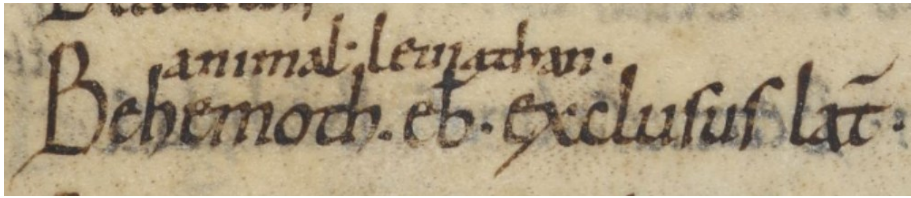 animal· leuiathan·
Behemoth. eƀ. exclusus lat̄.